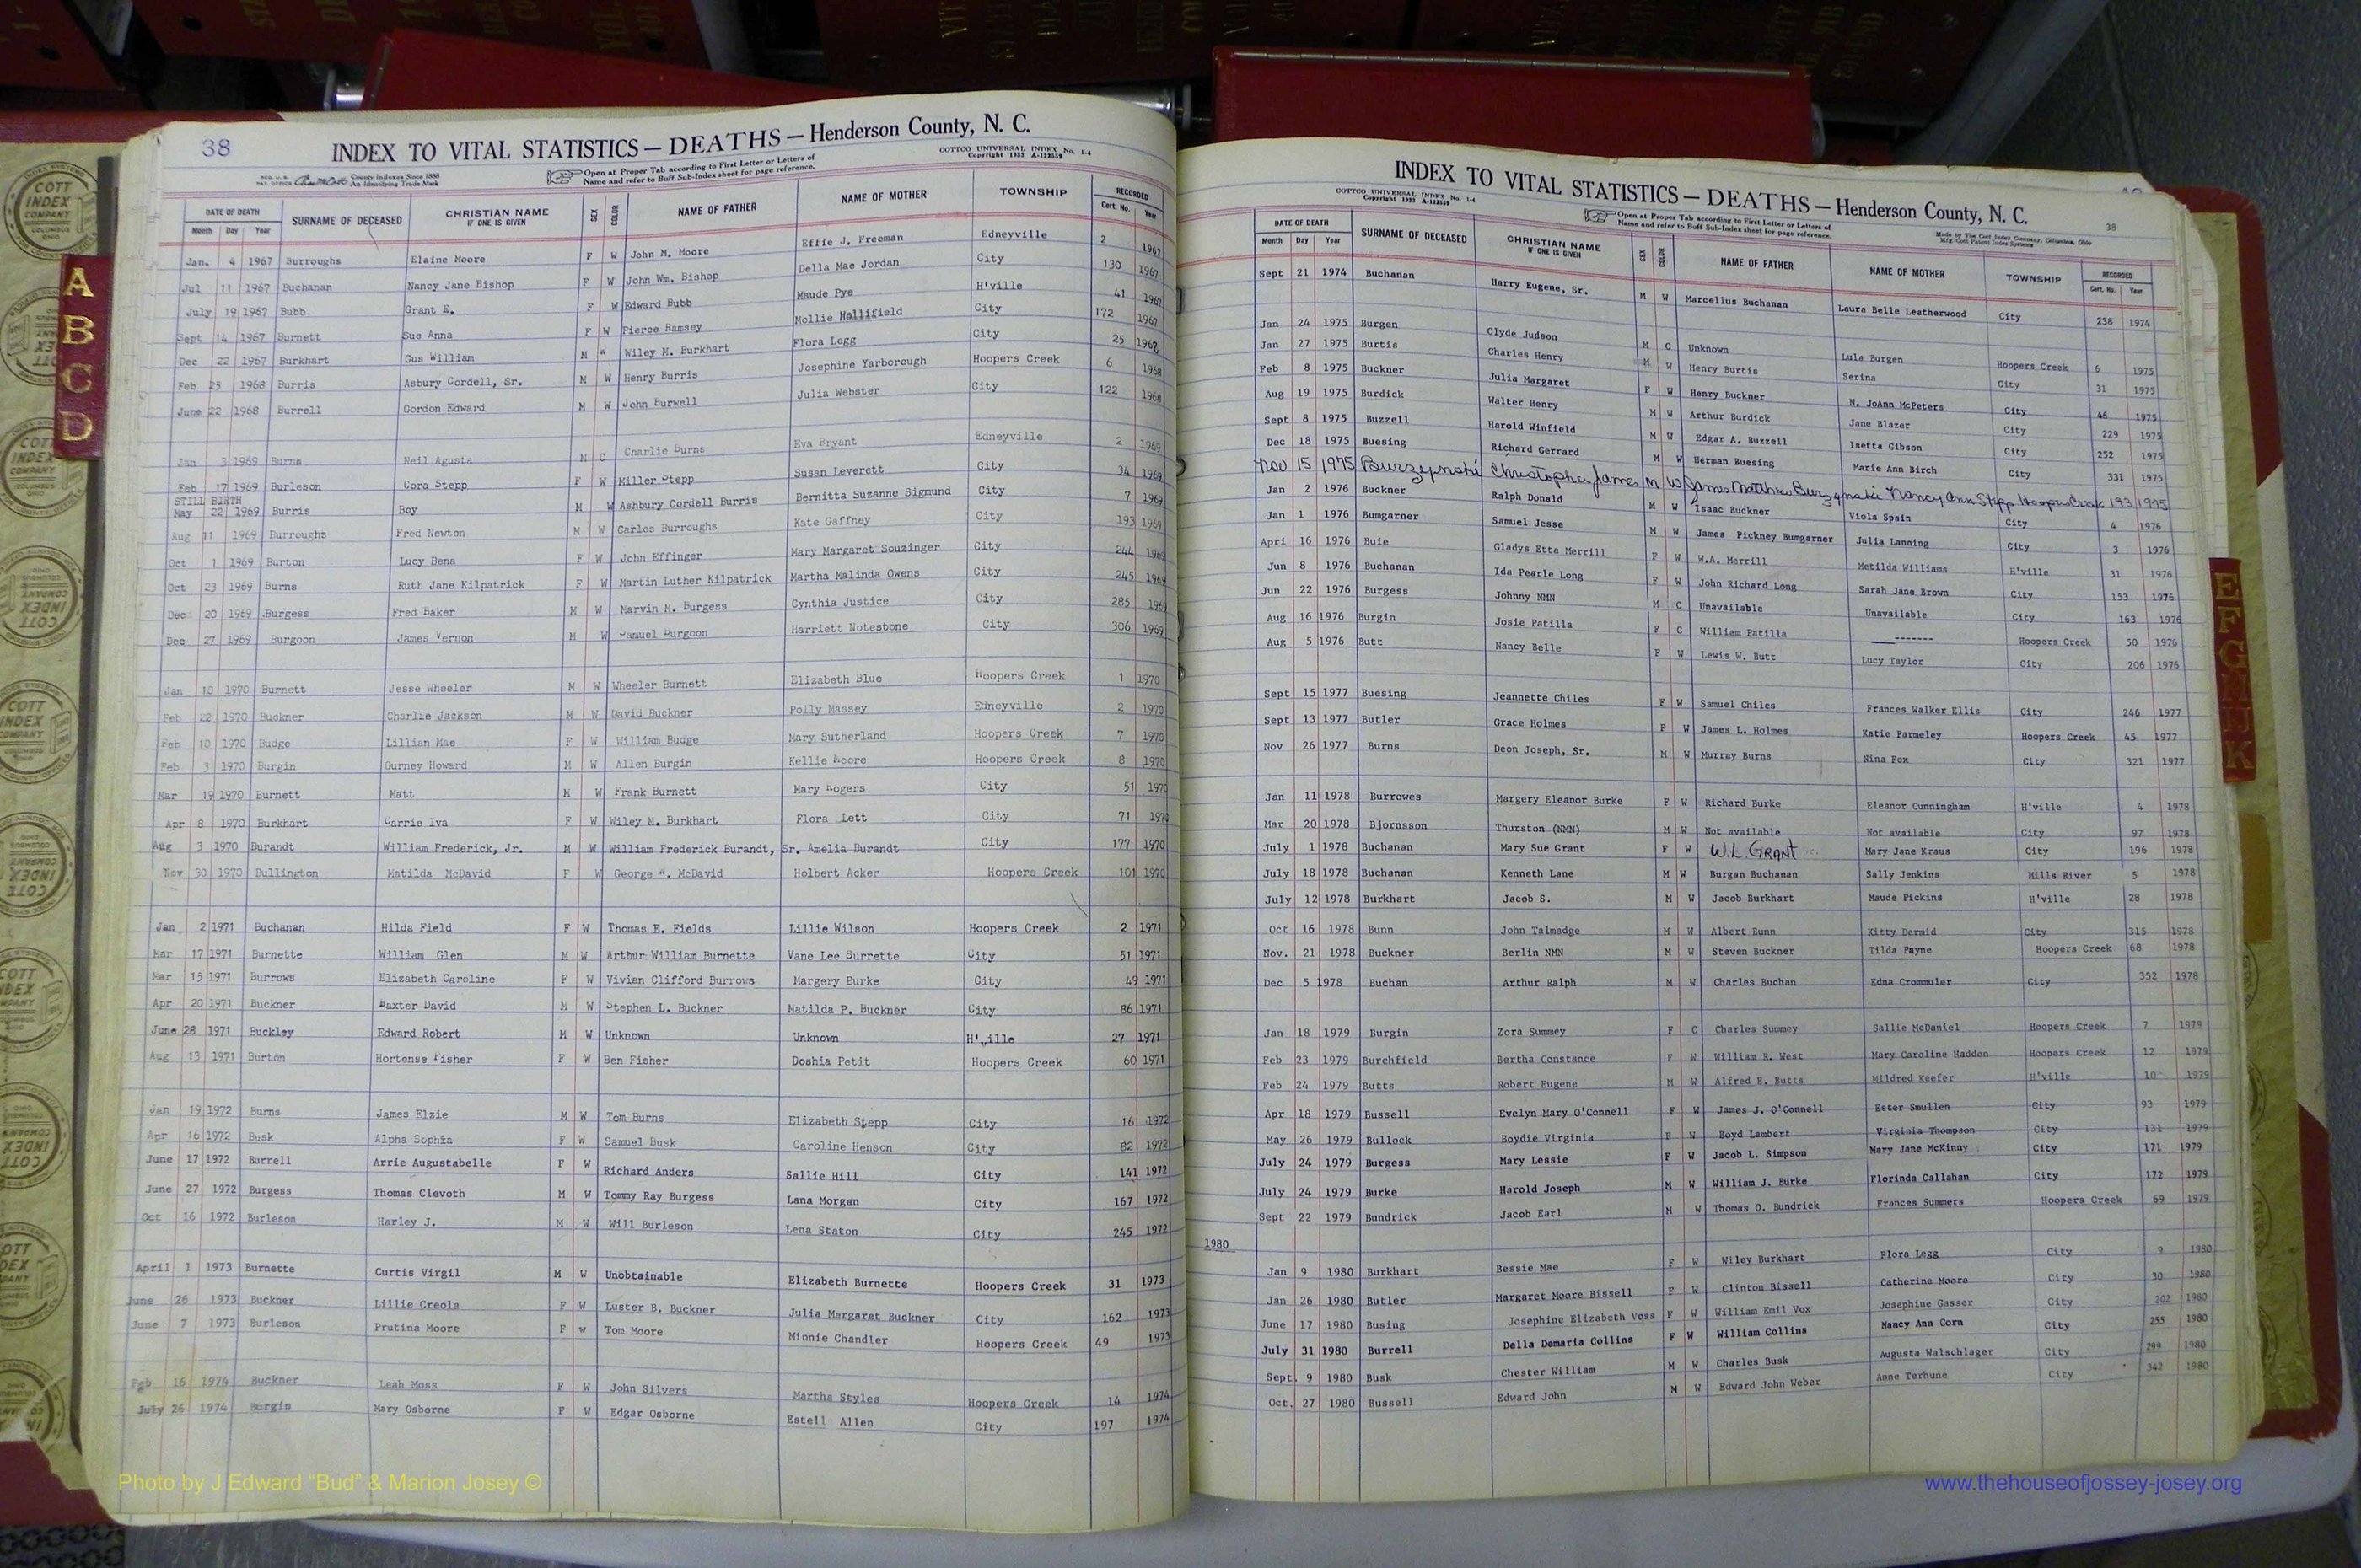 38
INDEX TO VITAL STATISTICS — DEATHS — Henderson County, N. C.
COTTCO UNIVERSAL INDEX No. 1-4
Copyright 1933 A-122559
County Indexes Since 1888
An Identifying Trade Mark
Open at Proper Tab according to First Letter or Letters of
Name and refer to Buff Sub-Index sheet for page reference.
DATE OF DEATH SURNAME OF DECEASED CHRISTIAN NAME IF ONE IS GIVEN SEX COLOR NAME OF FATHER NAME OF MOTHER TOWNSHIP RECORDED
Month Day Year Cert. No. Year
Jan. 4 1967 Burroughs Elaine Moore F W John M. Moore Effie J. Freeman Edneyville 2 1967
Jul 11 1967 Buchanan Nancy Jane Bishop F W John Wm. Bishop Della Mae Jordan City 130 1967
July 19 1967 Bubb Grant E. F W Edward Bubb Maude Pye H'ville 41 1967
Sept 14 1967 Burnett Sue Anna F W Pierce Ramsey Mollie Hollifield City 172 1967
Dec 22 1967 Burkhart Gus William M W Wiley M. Burkhart Flora Legg City 25 1968
Feb 25 1968 Burris Asbury Cordell, Sr. M W Henry Burris Josephine Yarborough Hoopers Creek 6 1968
June 22 1968 Burrell Gordon Edward M W John Burwell Julia Webster City 122 1968
Jan 3 1969 Burns Neil Agusta M C Charlie Burns Eva Bryant Edneyville 2 1969
Feb 17 1969 Burleson Cora Stepp F W Miller Stepp Susan Leverett City 34 1969
STILL BIRTH
May 22 1969 Burris Boy M W Ashbury Cordell Burris Bernitta Suzanne Sigmund City 7 1969
Aug 11 1969 Burroughs Fred Newton M W Carlos Burroughs Kate Gaffney City 193 1969
Oct 1 1969 Burton Lucy Bena F W John Effinger Mary Margaret Souzinger City 244 1969
Oct 23 1969 Burns Ruth Jane Kilpatrick F W Martin Luther Kilpatrick Martha Malinda Owens City 245 1969
Dec 20 1969 Burgess Fred Baker M W Marvin M. Burgess Cynthia Justice City 285 1969
Dec 27 1969 Burgoon James Vernon M W Samuel Burgoon Harriett Notestone City 306 1969
Jan 10 1970 Burnett Jesse Wheeler M W Wheeler Burnett Elizabeth Blue Hoopers Creek 1 1970
Feb 22 1970 Buckner Charlie Jackson M W David Buckner Polly Massey Edneyville 2 1970
Feb 10 1970 Budge Lillian Mae F W William Budge Mary Sutherland Hoopers Creek 7 1970
Feb 3 1970 Burgin Gurney Howard M W Allen Burgin Kellie Moore Hoopers Creek 8 1970
Mar 19 1970 Burnett Matt M W Frank Burnett Mary Rogers City 51 1970
Apr 8 1970 Burkhart Carrie Iva F W Wiley M. Burkhart Flora Lett City 71 1970
Aug 3 1970 Burandt William Frederick, Jr. M W William Frederick Burandt, Sr. Amelia Burandt City 177 1970
Nov 30 1970 Bullington Matilda McDavid F W George W. McDavid Holbert Acker Hoopers Creek 101 1970
Jan 2 1971 Buchanan Hilda Field F W Thomas E. Fields Lillie Wilson Hoopers Creek 2 1971
Mar 17 1971 Burnette William Glen M W Arthur William Burnette Vane Lee Surrette City 51 1971
Mar 15 1971 Burrows Elizabeth Caroline F W Vivian Clifford Burrows Margery Burke City 49 1971
Apr 20 1971 Buckner Baxter David M W Stephen L. Buckner Matilda P. Buckner City 86 1971
June 28 1971 Buckley Edward Robert M W Unknown Unknown H'ville 27 1971
Aug 13 1971 Burton Hortense Fisher F W Ben Fisher Doshia Petit Hoopers Creek 60 1971
Jan 19 1972 Burns James Elzie M W Tom Burns Elizabeth Stepp City 16 1972
Apr 16 1972 Busk Alpha Sophia F W Samuel Busk Caroline Henson City 82 1972
June 17 1972 Burrell Arrie Augustabelle F W Richard Anders Sallie Hill City 141 1972
June 27 1972 Burgess Thomas Clevoth M W Tommy Ray Burgess Lana Morgan City 167 1972
Oct 16 1972 Burleson Harley J. M W Will Burleson Lena Staton City 245 1972
April 1 1973 Burnette Curtis Virgil M W Unobtainable Elizabeth Burnette Hoopers Creek 31 1973
June 26 1973 Buckner Lillie Creola F W Luster B. Buckner Julia Margaret Buckner City 162 1973
June 7 1973 Burleson Prutina Moore F w Tom Moore Minnie Chandler Hoopers Creek 49 1973
Feb 16 1974 Buckner Leah Moss F W John Silvers Martha Styles Hoopers Creek 14 1974
July 26 1974 Burgin Mary Osborne F W Edgar Osborne Estell Allen City 197 1974
INDEX TO VITAL STATISTICS — DEATHS — Henderson County, N. C.
COTTCO UNIVERSAL INDEX No. 1-4
Copyright 1933 A-122559
Open at Proper Tab according to First Letter or Letters of
Name and refer to Buff Sub-Index sheet for page reference.
Made by The Cott Index Company, Columbus, Ohio
Mfg. Cott Patent Index Systems
38
DATE OF DEATH SURNAME OF DECEASED CHRISTIAN NAME IF ONE IS GIVEN SEX COLOR NAME OF FATHER NAME OF MOTHER TOWNSHIP RECORDED
Month Day Year Cert. No. Year
Sept 21 1974 Buchanan Harry Eugene, Sr. M W Marcellus Buchanan Laura Belle Leatherwood City 238 1974
Jan 24 1975 Burgen Clyde Judson M C Unknown Lula Burgen Hoopers Creek 6 1975
Jan 27 1975 Burtis Charles Henry M W Henry Burtis Serina City 31 1975
Feb 8 1975 Buckner Julia Margaret F W Henry Buckner N. JoAnn McPeters City 46 1975
Aug 19 1975 Burdick Walter Henry M W Arthur Burdick Jane Blazer City 229 1975
Sept 8 1975 Buzzell Harold Winfield M W Edgar A. Buzzell Isetta Gibson City 252 1975
Dec 18 1975 Buesing Richard Gerrard M W Herman Buesing Marie Ann Birch City 331 1975
Nov 15 1975 Burzynski Christopher James M W James Matthew Burzynski Nancy Ann Stepp Hoopers Creek 193 1975
Jan 2 1976 Buckner Ralph Donald M W Isaac Buckner Viola Spain City 4 1976
Jan 1 1976 Bumgarner Samuel Jesse M W James Pickney Bumgarner Julia Lanning City 3 1976
Apri 16 1976 Buie Gladys Etta Merrill F W W.A. Merrill Metilda Williams H'ville 31 1976
Jun 8 1976 Buchanan Ida Pearle Long F W John Richard Long Sarah Jane Brown City 153 1976
Jun 22 1976 Burgess Johnny NMN M C Unavailable Unavailable City 163 1976
Aug 16 1976 Burgin Josie Patilla F C William Patilla ------- Hoopers Creek 50 1976
Aug 5 1976 Butt Nancy Belle F W Lewis W. Butt Lucy Taylor City 206 1976
Sept 15 1977 Buesing Jeannette Chiles F W Samuel Chiles Frances Walker Ellis City 246 1977
Sept 13 1977 Butler Grace Holmes F W James L. Holmes Katie Parmeley Hoopers Creek 45 1977
Nov 26 1977 Burns Deon Joseph, Sr. M W Murray Burns Nina Fox City 321 1977
Jan 11 1978 Burrowes Margery Eleanor Burke F W Richard Burke Eleanor Cunningham H'ville 4 1978
Mar 20 1978 Bjornsson Thurston (NMN) M W Not available Not available City 97 1978
July 1 1978 Buchanan Mary Sue Grant F W W.L. GRANT Mary Jane Kraus City 196 1978
July 18 1978 Buchanan Kenneth Lane M W Burgan Buchanan Sally Jenkins Mills River 5 1978
July 12 1978 Burkhart Jacob S. M W Jacob Burkhart Maude Pickins H'ville 28 1978
Oct 16 1978 Bunn John Talmadge M W Albert Bunn Kitty Dermid City 315 1978
Nov. 21 1978 Buckner Berlin NMN M W Steven Buckner Tilda Payne Hoopers Creek 68 1978
Dec 5 1978 Buchan Arthur Ralph M W Charles Buchan Edna Crommuler City 352 1978
Jan 18 1979 Burgin Zora Summey F C Charles Summey Sallie McDaniel Hoopers Creek 7 1979
Feb 23 1979 Burchfield Bertha Constance F W William R. West Mary Caroline Haddon Hoopers Creek 12 1979
Feb 24 1979 Butts Robert Eugene M W Alfred E. Butts Mildred Keefer H'ville 10 1979
Apr 18 1979 Bussell Evelyn Mary O'Connell F W James J. O'Connell Ester Smullen City 93 1979
May 26 1979 Bullock Boydie Virginia F W Boyd Lambert Virginia Thompson City 131 1979
July 24 1979 Burgess Mary Lessie F W Jacob L. Simpson Mary Jane McKinny City 171 1979
July 24 1979 Burke Harold Joseph M W William J. Burke Florinda Callahan City 172 1979
Sept 22 1979 Bundrick Jacob Earl M W Thomas O. Bundrick Frances Summers Hoopers Creek 69 1979
1980
Jan 9 1980 Burkhart Bessie Mae F W Wiley Burkhart Flora Legg City 9 1980
Jan 26 1980 Butler Margaret Moore Bissell F W Clinton Bissell Catherine Moore City 30 1980
June 17 1980 Busing Josephine Elizabeth Voss F W William Emil Vox Josephine Gasser City 202 1980
July 31 1980 Burrell Della Demaria Collins F W William Collins Nancy Ann Corn City 255 1980
Sept. 9 1980 Busk Chester William M W Charles Busk Augusta Walschlager City 299 1980
Oct. 27 1980 Bussell Edward John M W Edward John Weber Anne Terhune City 342 1980
A
B
C
D
E
F
G
H
K
COTT
INDEX
COMPANY
COLUMBUS
OHIO
Photo by J Edward “Bud” & Marion Josey ©
www.thehouseofjossey-josey.org